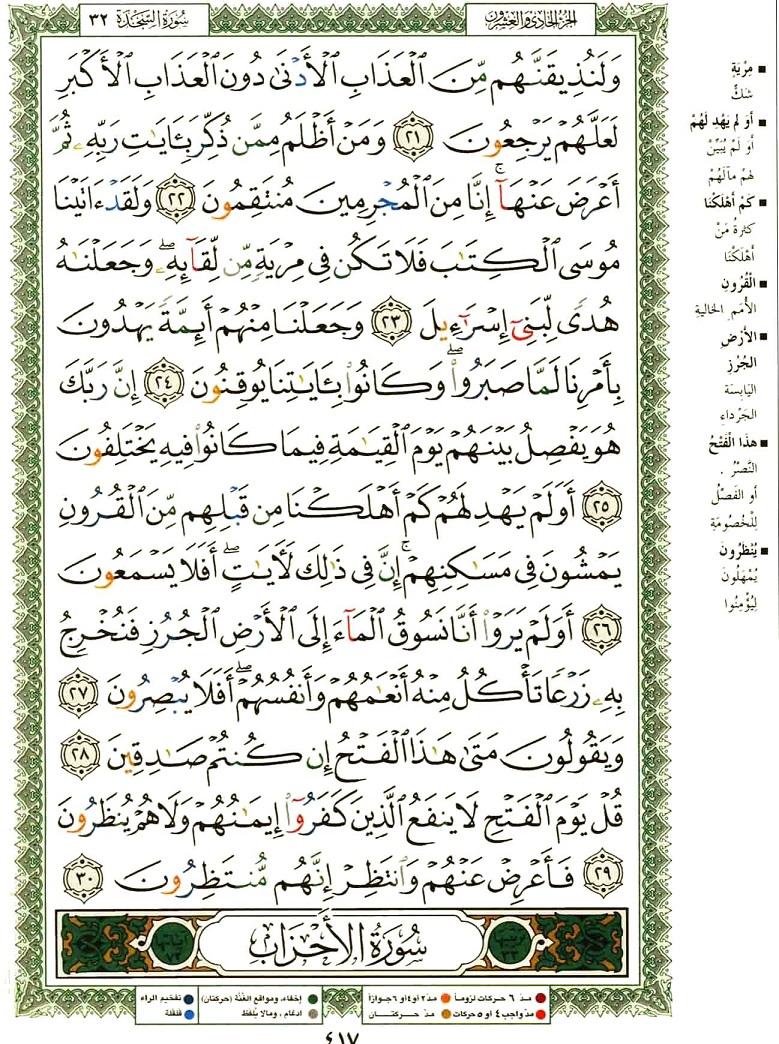 سُورَةُ السَّجْدَة ٣٢
الجُزْءُ الحَادِي وَالعِشْرُون
وَلَنُذِيقَنَّهُم مِّنَ ٱلْعَذَابِ ٱلْأَدْنَىٰ دُونَ ٱلْعَذَابِ ٱلْأَكْبَرِ
لَعَلَّهُمْ يَرْجِعُونَ ٢١ وَمَنْ أَظْلَمُ مِمَّن ذُكِّرَ بِـَٔايَـٰتِ رَبِّهِۦ ثُمَّ
أَعْرَضَ عَنْهَآ ۚ إِنَّا مِنَ ٱلْمُجْرِمِينَ مُنتَقِمُونَ ٢٢ وَلَقَدْ ءَاتَيْنَا
مُوسَى ٱلْكِتَـٰبَ فَلَا تَكُن فِى مِرْيَةٍ مِّن لِّقَآئِهِۦ ۖ وَجَعَلْنَـٰهُ
هُدًى لِّبَنِىٓ إِسْرَٰٓءِيلَ ٢٣ وَجَعَلْنَا مِنْهُمْ أَئِمَّةً يَهْدُونَ
بِأَمْرِنَا لَمَّا صَبَرُوا۟ ۖ وَكَانُوا۟ بِـَٔايَـٰتِنَا يُوقِنُونَ ٢٤ إِنَّ رَبَّكَ
هُوَ يَفْصِلُ بَيْنَهُمْ يَوْمَ ٱلْقِيَـٰمَةِ فِيمَا كَانُوا۟ فِيهِ يَخْتَلِفُونَ
٢٥ أَوَلَمْ يَهْدِ لَهُمْ كَمْ أَهْلَكْنَا مِن قَبْلِهِم مِّنَ ٱلْقُرُونِ
يَمْشُونَ فِى مَسَـٰكِنِهِمْ ۚ إِنَّ فِى ذَٰلِكَ لَـَٔايَـٰتٍ ۖ أَفَلَا يَسْمَعُونَ
٢٦ أَوَلَمْ يَرَوْا۟ أَنَّا نَسُوقُ ٱلْمَآءَ إِلَى ٱلْأَرْضِ ٱلْجُرُزِ فَنُخْرِجُ
بِهِۦ زَرْعًا تَأْكُلُ مِنْهُ أَنْعَـٰمُهُمْ وَأَنفُسُهُمْ ۖ أَفَلَا يُبْصِرُونَ ٢٧
وَيَقُولُونَ مَتَىٰ هَـٰذَا ٱلْفَتْحُ إِن كُنتُمْ صَـٰدِقِينَ ٢٨
قُلْ يَوْمَ ٱلْفَتْحِ لَا يَنفَعُ ٱلَّذِينَ كَفَرُوٓا۟ إِيمَـٰنُهُمْ وَلَا هُمْ يُنظَرُونَ
٢٩ فَأَعْرِضْ عَنْهُمْ وَٱنتَظِرْ إِنَّهُم مُّنتَظِرُونَ ٣٠
سُورَةُ الأَحْزَابِ
مِرْيَةٍ
شكٍّ
أوَ لم يَهْدِ لَهُمْ
أوَ لَمْ يُبَيِّنْ
لهم مآلَهُم
كَمْ أهْلَكْنَا
كثرةُ مَنْ
أهْلَكْنَا
القُرُونِ
الأمَمِ الخاليةِ
الأرْضِ
الجُرُزِ
اليَابِسَةِ
الجَرْدَاءِ
هذا الفَتْحُ
النَّصْرُ .
أو الفَصْلُ
لِلْخُصُومَةِ
يُنْظَرُونَ
يُمْهَلُونَ
لِيُؤْمِنُوا
مدّ ٦ حركات لزوماً
مدّ ٢ أو ٤ أو ٦ جوازاً
إخفاء، ومواقع الغُنَّة (حركتان)
تفخيم الراء
مدّ واجب ٤ أو ٥ حركات
مدّ حــركتـان
ادغام ، ومالا يُلفَظ
قلقلة
٤١٧